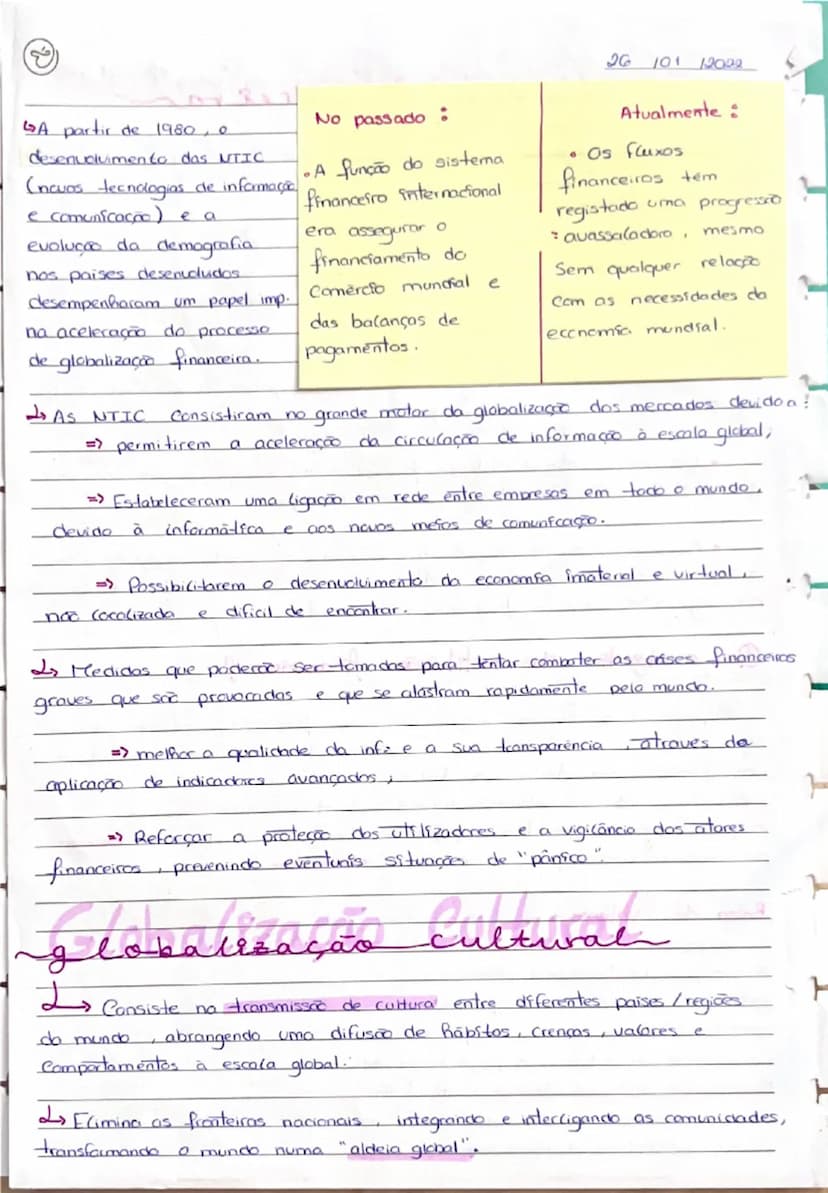 26 /01 /2022
↳ A partir de 1980, o
desenvolvimento das NTIC
(novas tecnologias de informação
e comunicação) e a
evolução da demografia
nos paises desenvoludos
desempenharam um papel imp.
na aceleração do processo
de globalização financeira.
No passado :
• A função do sistema
financeiro internacional
era assegurar o
financiamento do
comércio mundial e
das balanças de
pagamentos.
Atualmente :
• Os fluxos
financeiros têm
registado uma progressão
avassaladora, mesmo
sem qualquer relação
com as necessidades da
economia mundial.
↳ As NTIC consistiram no grande motor da globalização dos mercados devido a:
=> permitirem a aceleração da circulação de informação à escala global,
=> Estabeleceram uma ligação em rede entre empresas em todo o mundo,
devido à informática e aos novos meios de comunicação.
=> Possibilitarem o desenvolvimento da economia imaterial e virtual,
não localizada e dificil de encontrar.
↳ Medidas que poderão ser tomadas para tentar combater as crises financeiras
graves que são provocadas e que se alastram rapidamente pelo mundo.
=> melhor a qualidade da inf. e a sua transparência, atraves da
aplicação de indicadores avançados,
=> Reforçar a proteção dos utilizadores e a vigilância dos atores
financeiros, prevenindo eventuais situações de "pânico".
Globalização Cultural
↳ Consiste na transmissão de cultura entre diferentes paises/regiões
do mundo, abrangendo uma difusão de hábitos, crenças, valores e
comportamentos à escala global.
↳ Elimina as fronteiras nacionais, integrando e interligando as comunidades,
transformando o mundo numa "aldeia global".